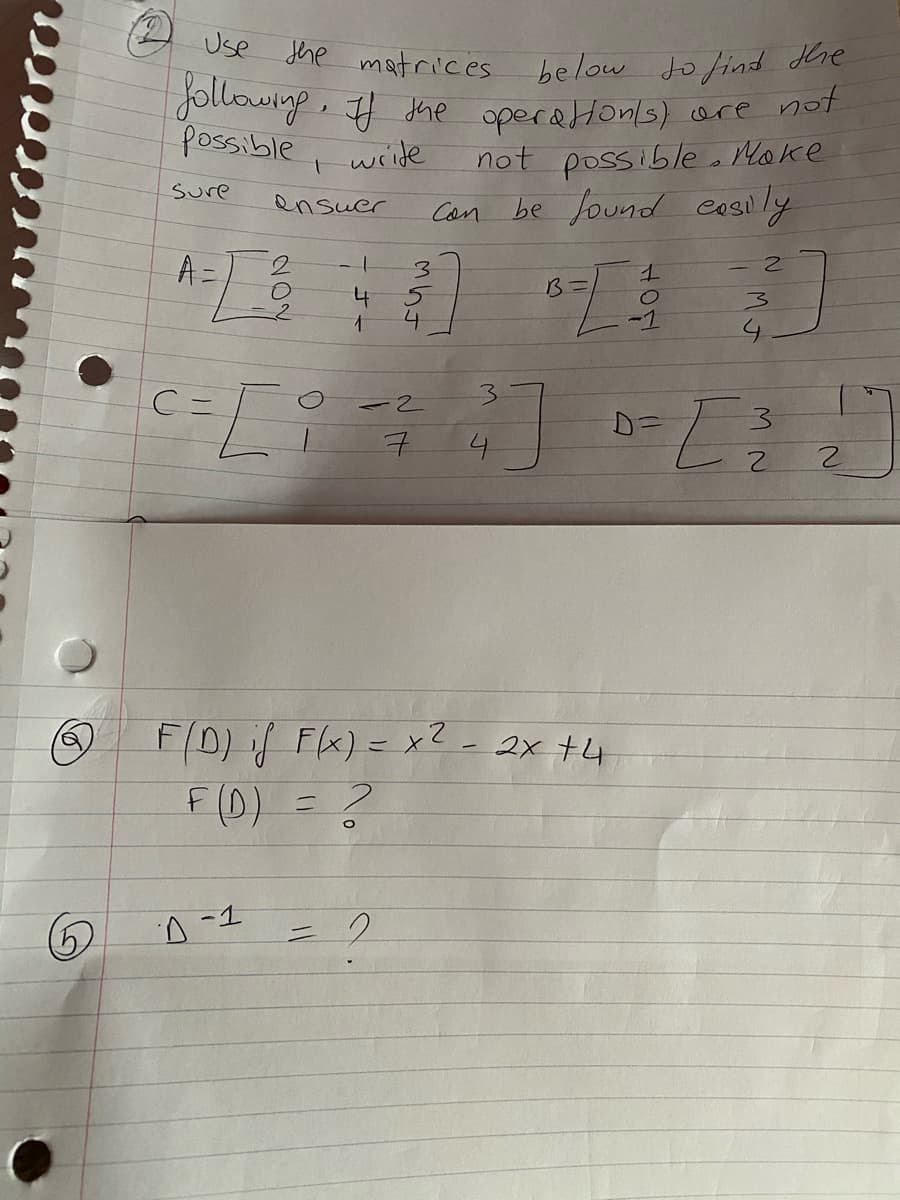 2 Use the matrices below to find the
following. If the operation(s) are not
possible, write not possible. Make
sure answer can be found easily
A = [ 2 -1 3
0 4 5
-2 1 4 ]
B = [ 1 -2
0 3
-1 4 ]
C = [ 0 -2 3
1 7 4 ]
D = [ 3 1
2 2 ]
a F(D) if F(x) = x² - 2x +4
F(D) = ?
5 D⁻¹ = ?